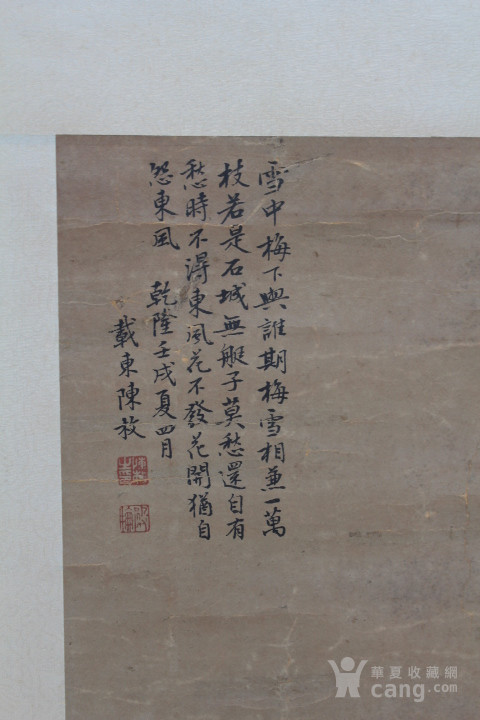 雪中梅下與誰期梅雪相兼一萬
枝若是石城無艇子莫愁還自有
愁時不得東風花不發花開猶自
怨東風　乾隆壬戌夏四月
載東陳枚
華夏收藏網
cang.com